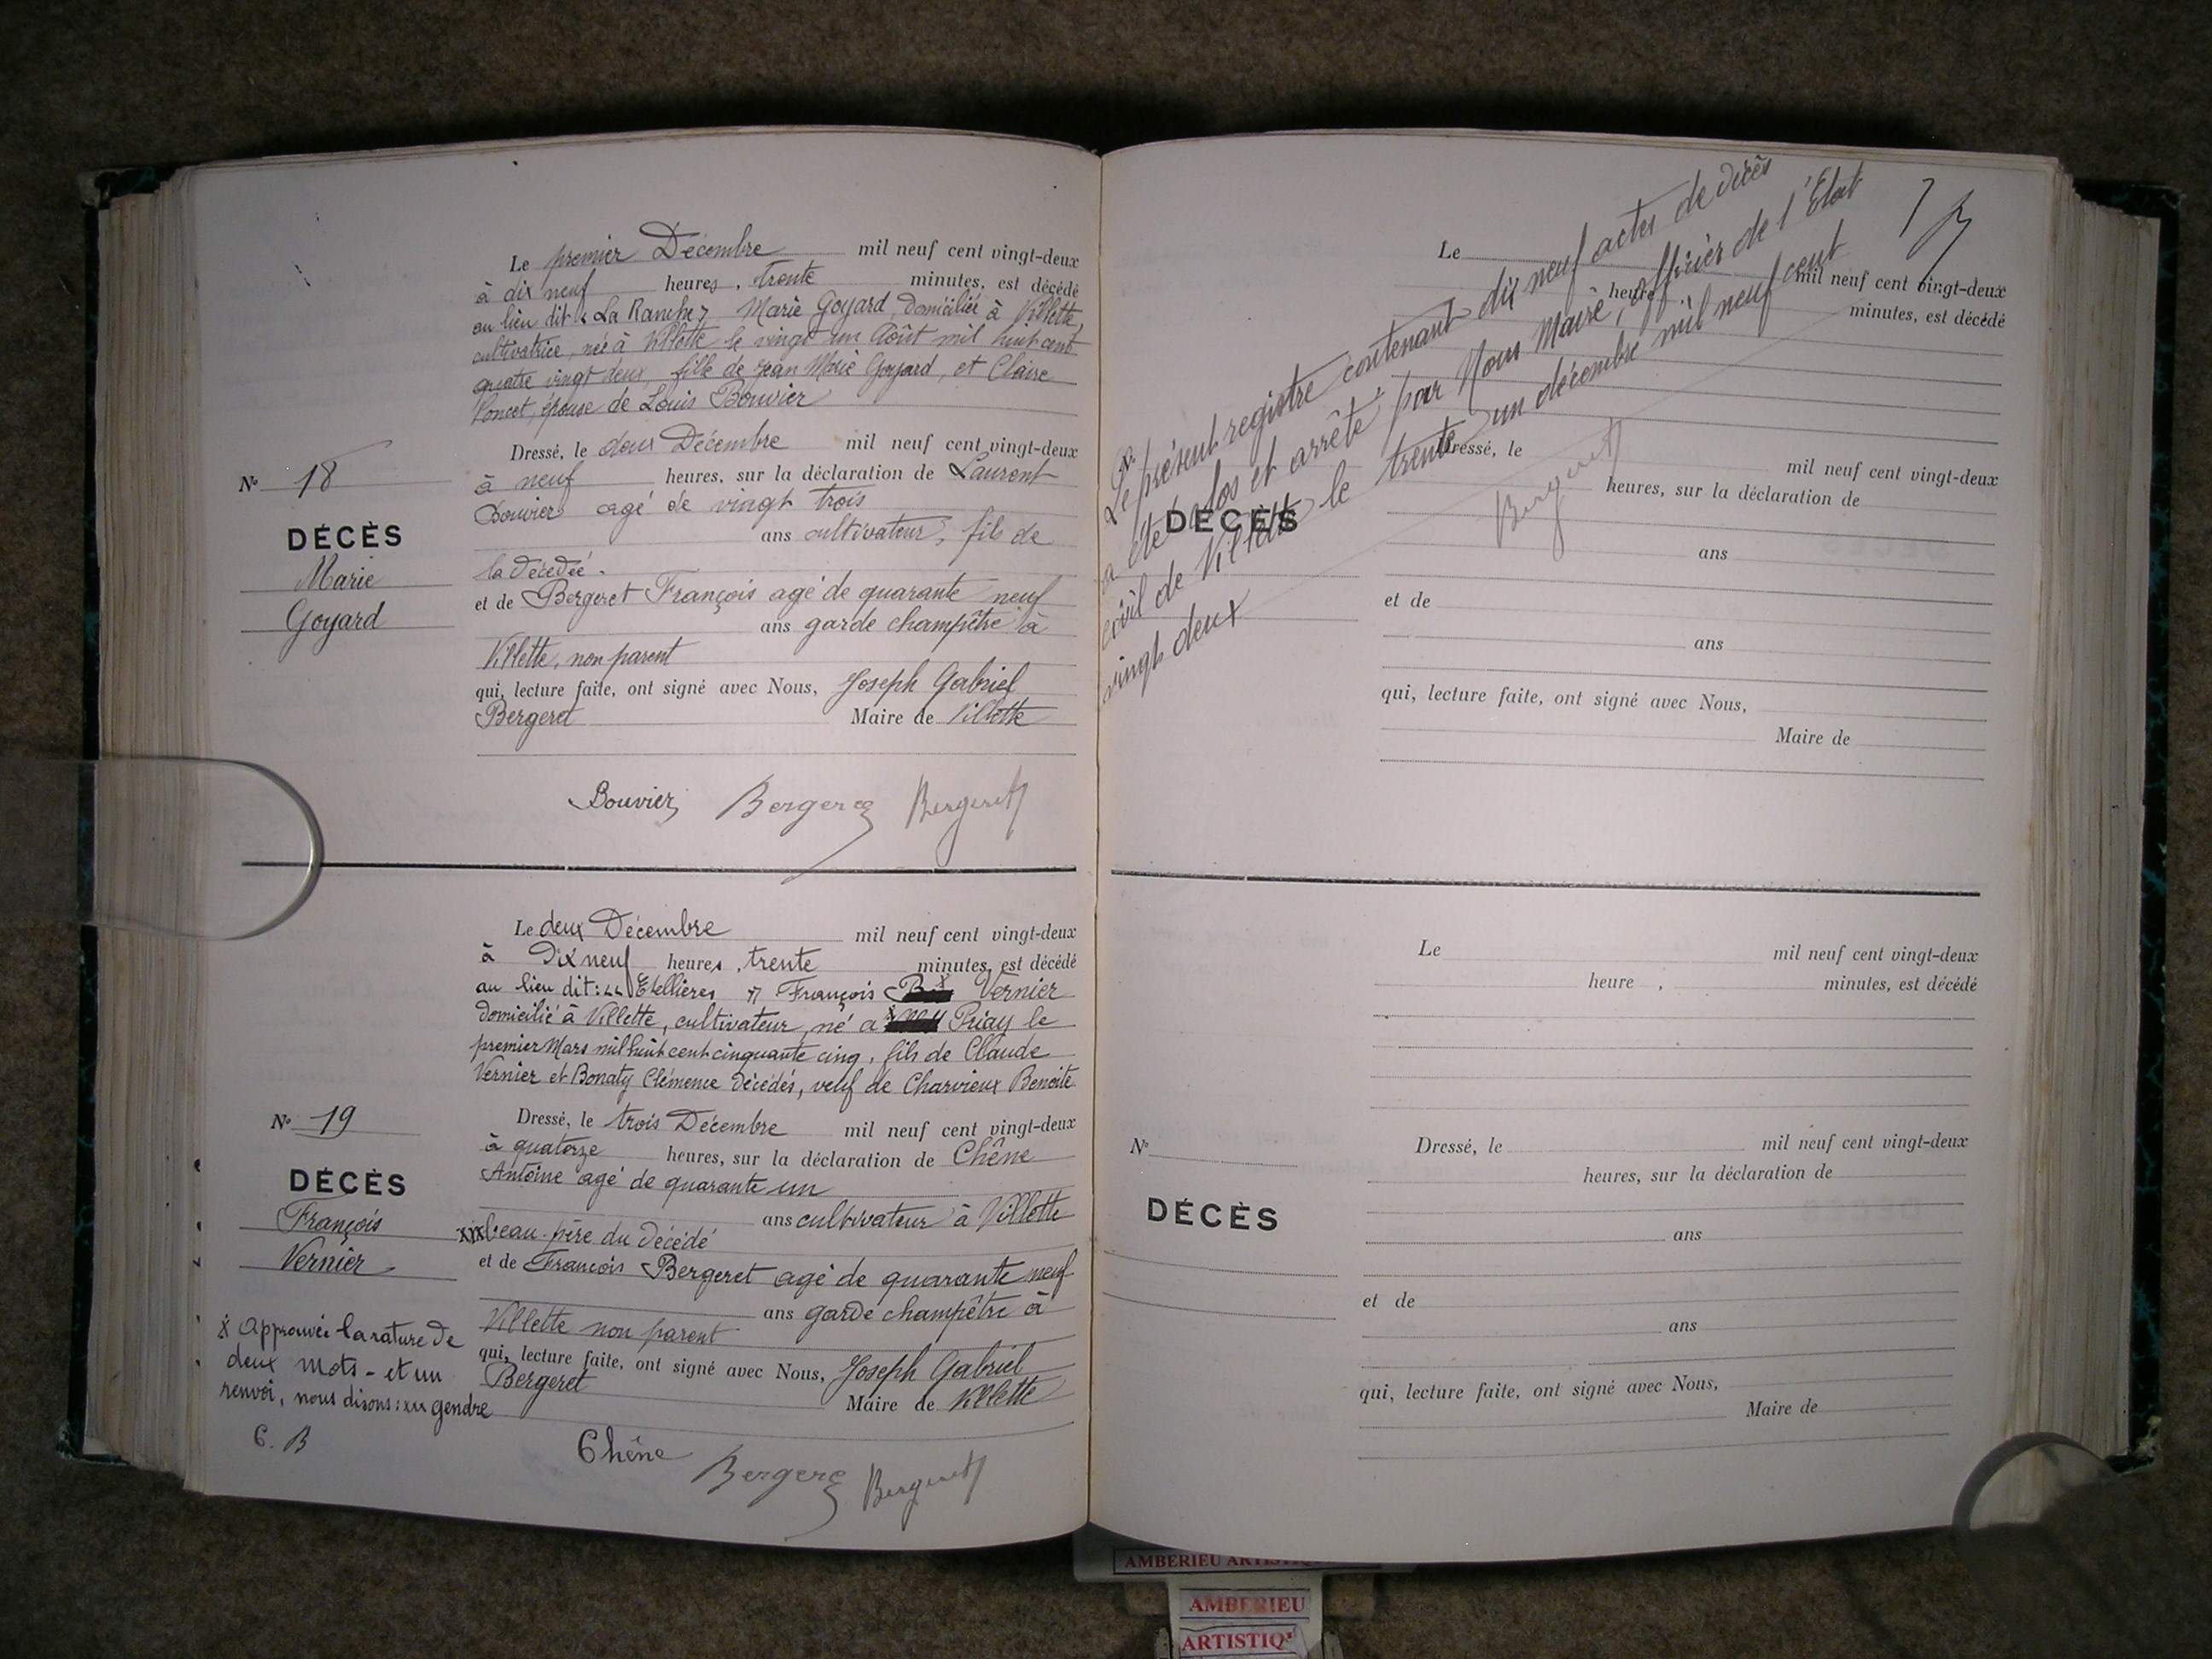 Le premier Décembre mil neuf cent vingt-deux
à dix neuf heures, trente minutes, est décédé
au lieu dit « La Ranche » Marie Goyard, domiciliée à Villette,
cultivatrice, née à Villette le vingt un Août mil huit cent
quatre vingt deux, fille de Jean Marie Goyard, et Claire
Poncet, épouse de Louis Bouvier
Dressé, le deux Décembre mil neuf cent vingt-deux
à neuf heures, sur la déclaration de Laurent
Bouvier agé de vingt trois
ans cultivateur, fils de
la décédée.
et de Bergeret François agé de quarante neuf
ans garde champêtre à
Villette, non parent
qui, lecture faite, ont signé avec Nous, Joseph Gabriel
Bergeret Maire de Villette
No 18
DÉCÈS
Marie
Goyard
Bouvier Bergeret Bergeret
Le deux Décembre mil neuf cent vingt-deux
à Dix neuf heures, trente minutes, est décédé
au lieu dit : " Etellières " François Vernier
domicilié à Villette, cultivateur, né a Priay le
premier Mars mil huit cent cinquante cinq, fils de Claude
Vernier et Bonaty Clémence décédés, veuf de Charvieux Benoite
Dressé, le trois Décembre mil neuf cent vingt-deux
à quatorze heures, sur la déclaration de Chêne
Antoine agé de quarante un
ans cultivateur à Villette
xxx beau-père du décédé
et de François Bergeret agé de quarante neuf
ans garde champêtre à
Villette non parent
qui, lecture faite, ont signé avec Nous, Joseph Gabriel
Bergeret Maire de Villette
No 19
DÉCÈS
François
Vernier
x Approuvée la rature de
deux mots - et un
renvoi, nous disons : xxx gendre
C. B
Chêne Bergeret Bergeret
Le présent registre contenant dix neuf actes de décès
a été clos et arrêté par Nous Maire, officier de l'Etat
civil de Villette le trente un décembre mil neuf cent
vingt deux
Bergeret
Le mil neuf cent vingt-deux
heure minutes, est décédé
Dressé, le mil neuf cent vingt-deux
heures, sur la déclaration de
ans
et de
ans
qui, lecture faite, ont signé avec Nous,
Maire de
No
DÉCÈS
Le mil neuf cent vingt-deux
heure , minutes, est décédé
Dressé, le mil neuf cent vingt-deux
heures, sur la déclaration de
ans
et de
ans
qui, lecture faite, ont signé avec Nous,
Maire de
No
DÉCÈS
AMBERIEU
AMBERIEU
ARTISTIQ